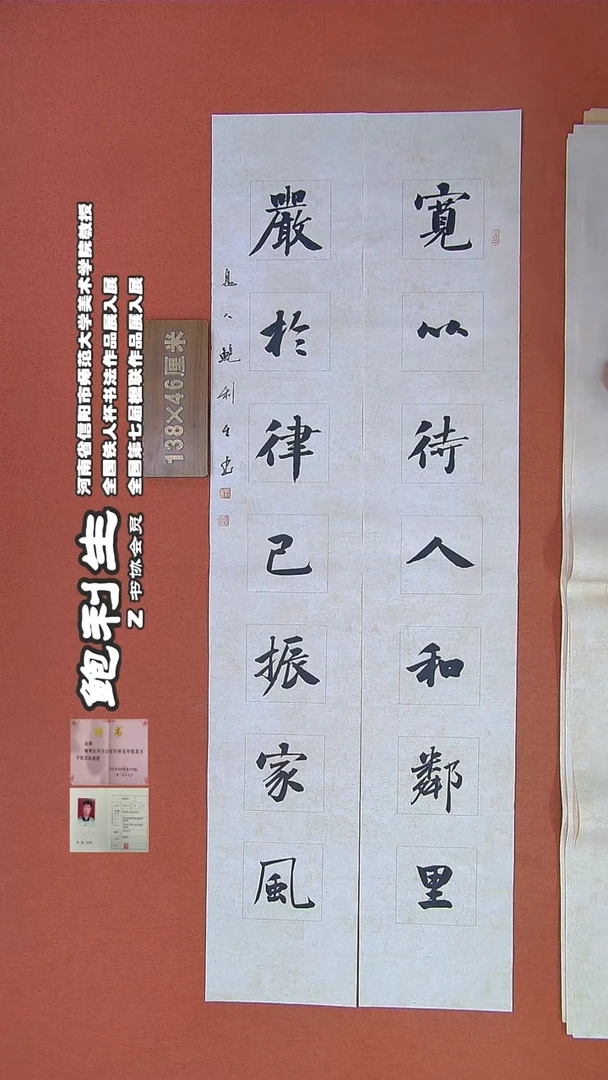 寬以待人和鄰里
嚴於律己振家風
息人鲍利生書
138×46厘米
河南省信阳市师范大学美术学院教授
全国铁人杯书法作品展入展
全国第七届楹联作品展入展
鲍利生
Z书协会员
聘书